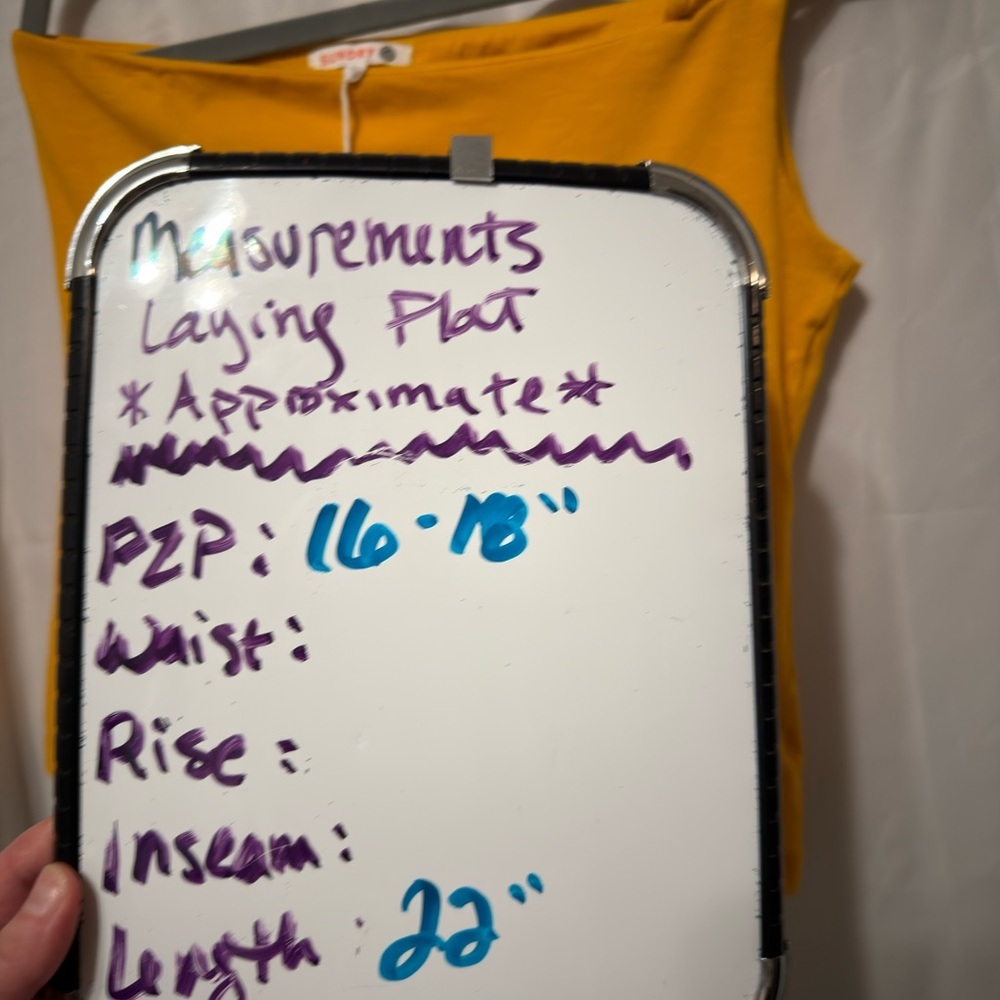 Measurements
Laying Flat
*Approximate*
P2P: 16-18"
Waist:
Rise:
Inseam:
Length: 22"